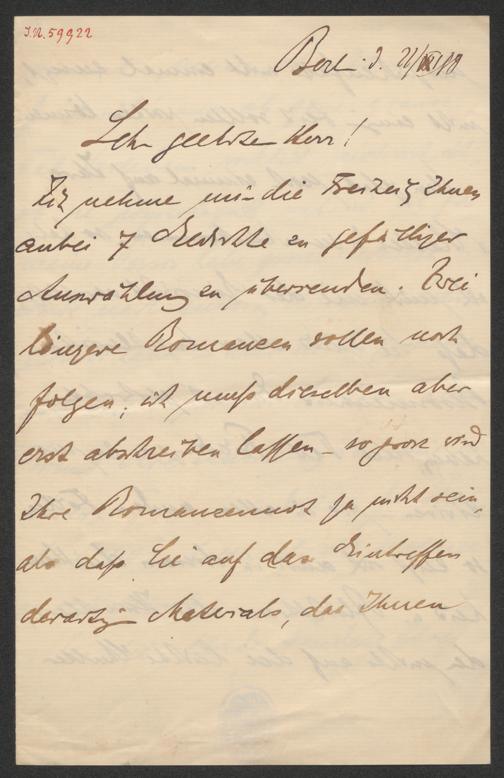 I.N. 59922
Berl. 21/98
Sehr geehrter Herr!
Ich nehme mir die Freiheit Ihnen
anbei 7 Gedichte zu gefälliger
Auswählung zu übersenden. Zwei
längere Romancen sollen noch
folgen; ich muß dieselben aber
erst abschreiben lassen – so groß wird
Ihre Romancennot ja nicht sein,
als daß Sie auf das Eintreffen
derartigen Materials, das Ihnen